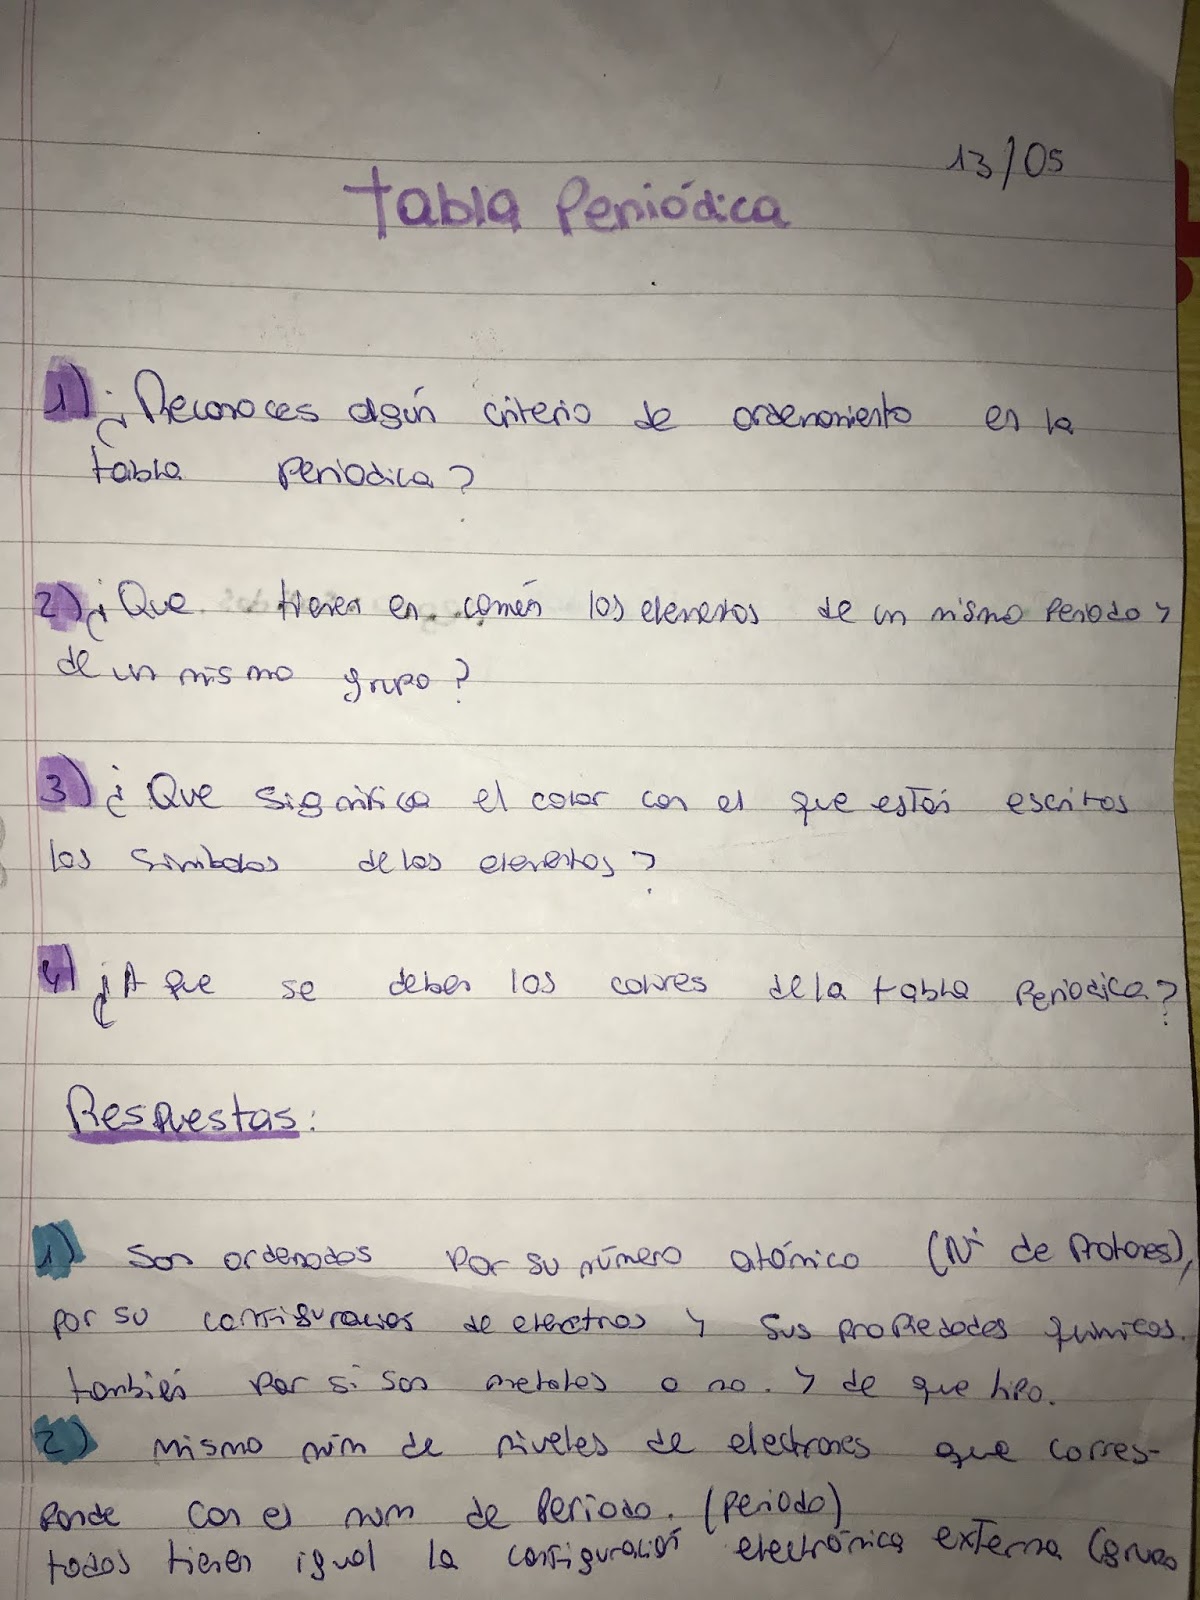 13/05
tabla Periódica
1) ¿Reconoces algún criterio de ordenamiento en la
tabla periodica?
2) ¿Que tienen en común los elementos de un mismo Periodo y
de un mismo grupo?
3) ¿Que significa el color con el que están escritos
los simbolos de los elementos?
4) ¿A que se deben los colores de la tabla Periodica?
Respuestas:
1) Son ordenados Por su número atómico (N° de Protones),
por su configuracion de electrnos y sus propiedades quimicas.
también Por si son metales o no. y de que tipo.
2) mismo núm de niveles de electrones que corres-
ponde con el num de Periodo. (periodo)
todos tienen igual la configuración electrónica externa (grupo